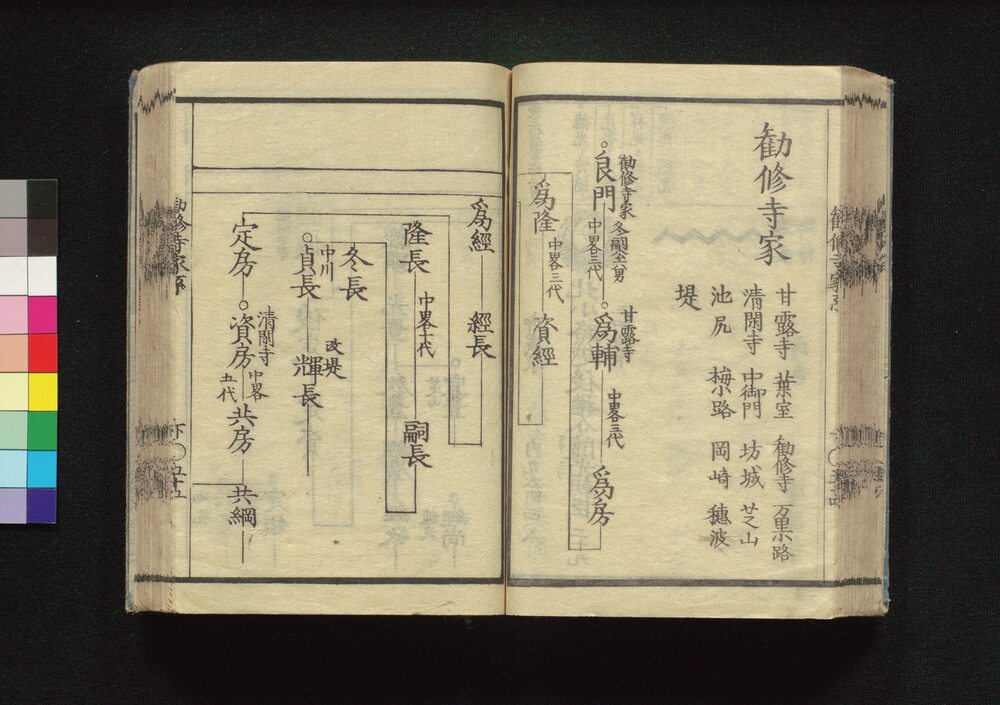 勧修寺家
甘露寺 葉室 勧修寺 万里小路
清閑寺 中御門 坊城 芝山
池尻 梅小路 岡崎 穂波
堤
勧修寺家 冬嗣公六男
良門 中畧三代
甘露寺
爲輔 中畧三代 爲房
爲隆 中畧三代 資經
爲經 經長
隆長 中畧十代 嗣長
冬長
中川
貞長 改堤 輝長
定房 清閑寺 資房 中畧五代 共房 共綱
勧修寺家系
下 五十五